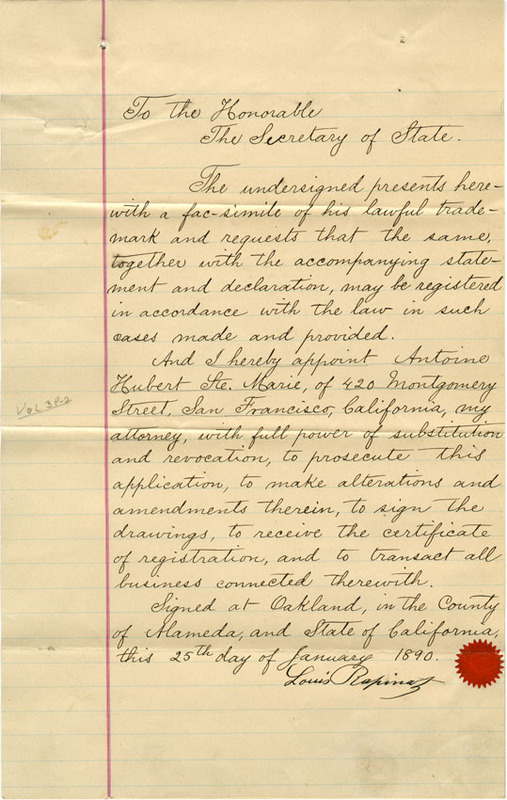 To the Honorable
The Secretary of State.
The undersigned presents here-
with a fac-simile of his lawful trade-
mark and requests that the same,
together with the accompanying state-
ment and declaration, may be registered
in accordance with the law in such
cases made and provided.
And I hereby appoint Antoine
Hubert Ste. Marie, of 420 Montgomery
Street, San Francisco, California, my
attorney, with full power of substitution
and revocation, to prosecute this
application, to make alterations and
amendments therein, to sign the
drawings, to receive the certificate
of registration, and to transact all
business connected therewith.
Signed at Oakland, in the County
of Alameda, and State of California,
this 25th day of January 1890.
Louis Rapinaz
Vol 3 P.2